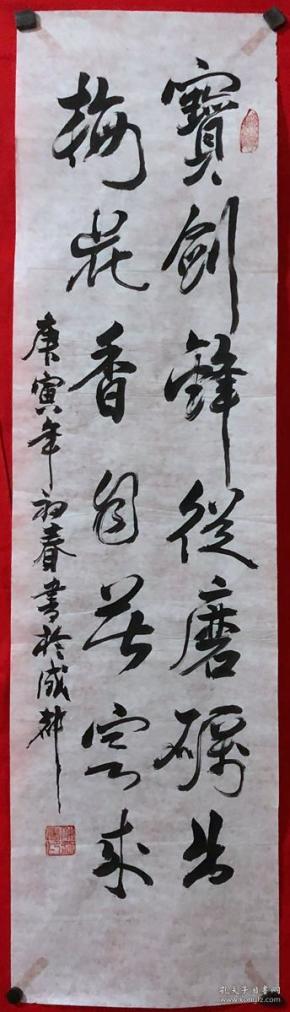 寶劍鋒從磨礪出
梅花香自苦寒來
庚寅年初春書於成都
孔夫子旧书网